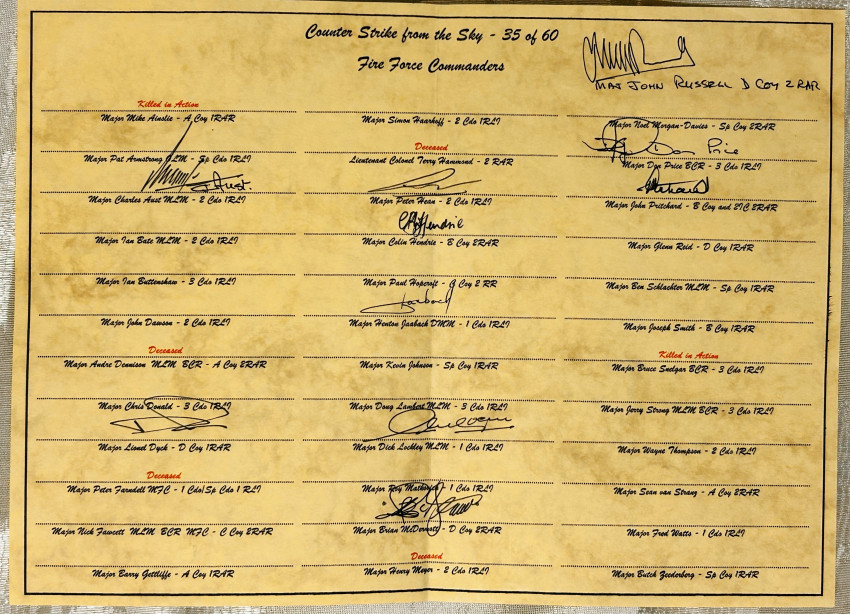 Counter Strike from the Sky - 35 of 60
Fire Force Commanders
MAJ JOHN RUSSELL D COY 2 RAR
Killed in Action
Major Mike Ainslie - A Coy 1RAR
Major Pat Armstrong MLM - Sp Cdo 1RLI
Major Charles Aust MLM - 2 Cdo 1RLI
Major Ian Bate MLM - 2 Cdo 1RLI
Major Ian Buttenshaw - 3 Cdo 1RLI
Major John Dawson - 2 Cdo 1RLI
Deceased
Major Andre Dennison MLM BCR - A Coy 2RAR
Major Chris Donald - 3 Cdo 1RLI
Major Lionel Dyck - D Coy 1RAR
Deceased
Major Peter Farndell MFC - 1 Cdo/Sp Cdo 1 RLI
Major Nick Fawcett MLM BCR MFC - C Coy 2RAR
Major Barry Gettliffe - A Coy 1RAR
Major Simon Haarhoff - 2 Cdo 1RLI
Deceased
Lieutenant Colonel Terry Hammond - 2 RAR
Major Peter Hean - 2 Cdo 1RLI
Hendrie
Major Colin Hendrie - B Coy 2RAR
Major Paul Hopcroft - C Coy 2 RR
Major Henton Jaabach DMM - 1 Cdo 1RLI
Major Kevin Johnson - Sp Coy 1RAR
Major Doug Lambert MLM - 3 Cdo 1RLI
Major Dick Lockley MLM - 1 Cdo 1RLI
Major Roy - 1 Cdo 1RLI
Major Brian McDermott - D Coy 2RAR
Deceased
Major Henry Meyer - 2 Cdo 1RLI
Major Noel Morgan-Davies - Sp Coy 2RAR
Don Price
Major Don Price BCR - 3 Cdo 1RLI
Major John Pritchard - B Coy and 2IC 2RAR
Major Glenn Reid - D Coy 1RAR
Major Ben Schlachter MLM - Sp Coy 1RAR
Major Joseph Smith - B Coy 1RAR
Killed in Action
Major Bruce Snelgar BCR - 3 Cdo 1RLI
Major Jerry Strong MLM BCR - 3 Cdo 1RLI
Major Wayne Thompson - 2 Cdo 1RLI
Major Sean van Strang - A Coy 2RAR
Major Fred Watts - 1 Cdo 1RLI
Major Butch Zeederberg - Sp Coy 1RAR